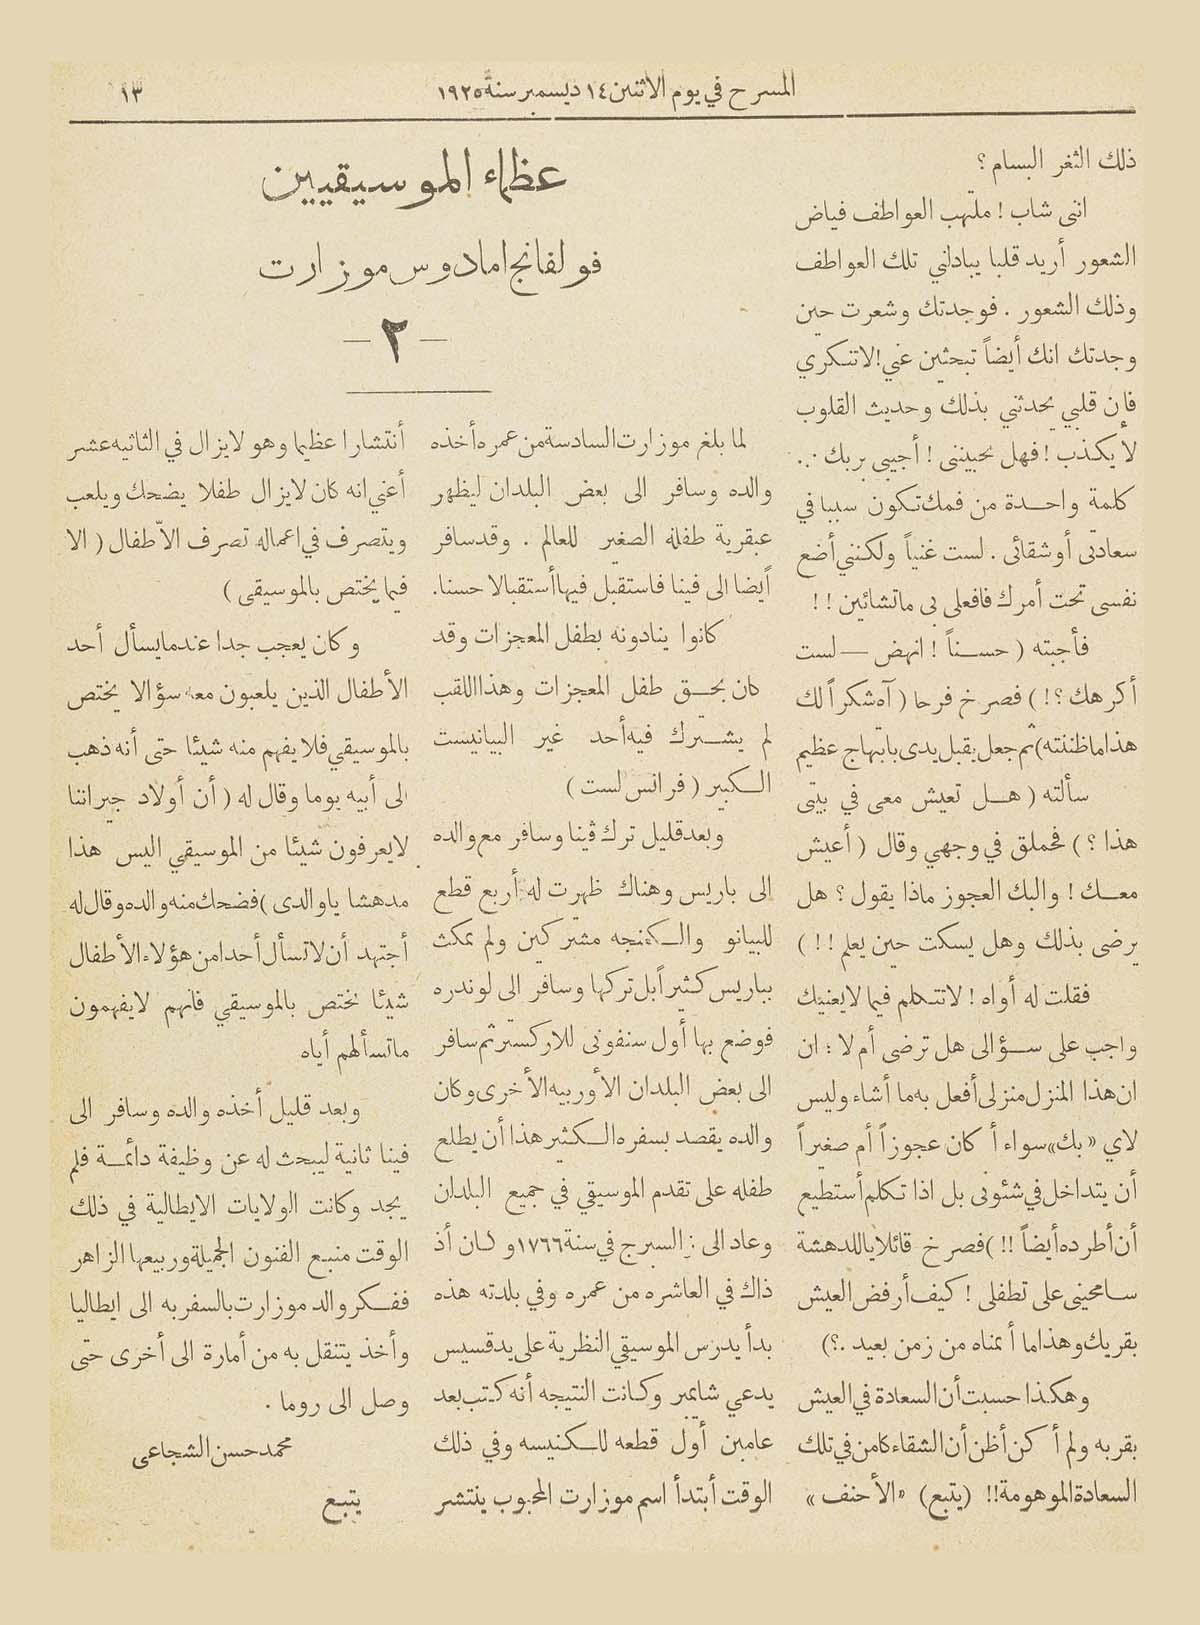 المسرح في يوم الاثنين ١٤ ديسمبر سنة ١٩٢٥
١٣
ذلك الثغر البسام ؟
اننى شاب ! ملتهب العواطف فياض
الشعور أريد قلبا يبادلني تلك العواطف
وذلك الشعور . فوجدتك وشعرت حين
وجدتك انك أيضاً تبحثين عني ! لا تنكري
فإن قلبي يحدثني بذلك وحديث القلوب
لا يكذب ! فهل تحبيننى ! أجيبى بربك . .
كلمة واحدة من فمك تكون سببا في
سعادتى أو شقائى . لست غنياً ولكنني أضع
نفسى تحت أمرك فافعلى بى ما تشائين ! !
فأجبته ( حسناً ! انهض — لست
أكرهك ؟! ) فصرخ فرحا ( آه شكراً لك
هذا ما ظننته ) ثم جعل يقبل يدى بابتهاج عظيم
سألته ( هل تعيش معى في بيتى
هذا ؟ ) فحملق في وجهي وقال ( أعيش
معك ! والبك العجوز ماذا يقول ؟ هل
يرضى بذلك وهل يسكت حين يعلم ! ! )
فقلت له أواه ! لا تتكلم فيما لا يعنيك
واجب على سؤالى هل ترضى أم لا ؛ ان
ان هذا المنزل منزلى أفعل به ما أشاء وليس
لاي « بك » سواء أ كان عجوزاً أم صغيراً
أن يتداخل في شئونى بل اذا تكلم أستطيع
أن أطرده أيضاً !! ) فصرخ قائلا يا للدهشة
سامحينى على تطفلى ! كيف أرفض العيش
بقربك وهذا ما أتمناه من زمن بعيد .؟ )
وهكذا حسبت أن السعادة في العيش
بقربه ولم أ كن أظن أن الشقاء كامن في تلك
السعادة الموهومة !! (يتبع) « الأحنف »
عظماء الموسيقيين
فولفانج امادوس موزارت
— ٢ —
لما بلغ موزارت السادسة من عمره أخذه
والده وسافر الى بعض البلدان ليظهر
عبقرية طفله الصغير للعالم . وقد سافر
أيضا الى فينا فاستقبل فيها أستقبالا حسنا .
كانوا ينادونه بطفل المعجزات وقد
كان بحق طفل المعجزات وهذا اللقب
لم يشترك فيه أحد غير البيانيست
الكبير ( فرانس لست )
وبعد قليل ترك ڤينا وسافر مع والده
الى باريس وهناك ظهرت له أربع قطع
للبيانو والكمنجه مشتركين ولم يمكث
بباريس كثيراً بل تركها وسافر الى لوندره
فوضع بها أول سنفونى للاركستر ثم سافر
الى بعض البلدان الأوربيه الأخرى وكان
والده يقصد بسفره الكثير هذا أن يطلع
طفله على تقدم الموسيقي في جميع البلدان
وعاد الى السبرج في سنة ١٧٦٦ وكان أذ
ذاك في العاشره من عمره وفي بلدته هذه
بدأ يدرس الموسيقي النظرية على يد قسيس
يدعي شايمبر وكانت النتيجه أنه كتب بعد
عامين أول قطعه للكنيسه وفي ذلك
الوقت أبتدأ اسم موزارت المحبوب ينتشر
أنتشارا عظيما وهو لا يزال في الثانيه عشر
أعني انه كان لا يزال طفلا يضحك ويلعب
ويتصرف في اعماله تصرف الأطفال ( الا
فيما يختص بالموسيقى )
وكان يعجب جدا عندما يسأل أحد
الأطفال الذين يلعبون معه سؤالا يختص
بالموسيقي فلا يفهم منه شيئا حتى أنه ذهب
الى أبيه يوما وقال له ( أن أولاد جيراننا
لا يعرفون شيئا من الموسيقي اليس هذا
مدهشا يا والدى ) فضحك منه والده وقال له
أجتهد أن لا تسأل أحدا من هؤلاء الأطفال
شيئا يختص بالموسيقي فأنهم لا يفهمون
ما تسألهم أياه
وبعد قليل أخذه والده وسافر الى
فينا ثانية ليبحث له عن وظيفة دائمة فلم
يجد وكانت الولايات الايطالية في ذلك
الوقت منبع الفنون الجميلة وربيعها الزاهر
ففكر والد موزارت بالسفر به الى ايطاليا
وأخذ يتنقل به من أمارة الى أخرى حتى
وصل الى روما .
محمد حسن الشجاعى
يتبع